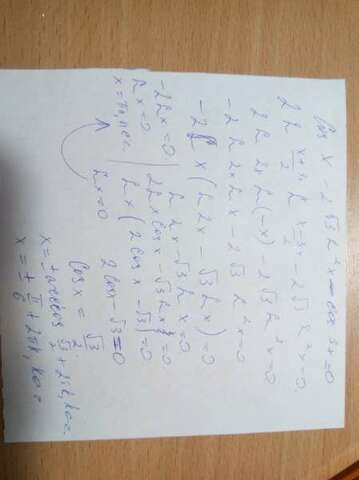 cos x - 2√3 sin²x - cos 3x = 0
2 sin (x+3x)/2 sin (x-3x)/2 - 2√3 sin²x = 0
2 sin 2x sin(-x) - 2√3 sin²x = 0
-2 sin 2x sin x - 2√3 sin²x = 0
-2 sin x (sin 2x - √3 sin x) = 0
-2 sin x = 0
sin x = 0
x = πn, n∈Z
sin 2x - √3 sin x = 0
2 sin x cos x - √3 sin x = 0
sin x (2 cos x - √3) = 0
sin x = 0
2 cos x - √3 = 0
cos x = √3/2
x = ± arccos √3/2 + 2πk, k∈Z
x = ± π/6 + 2πk, k∈Z